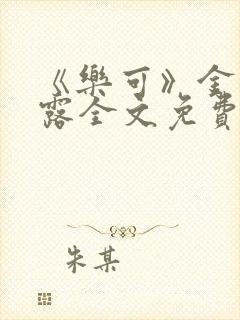 《樂可》金
露全文免費
朱某